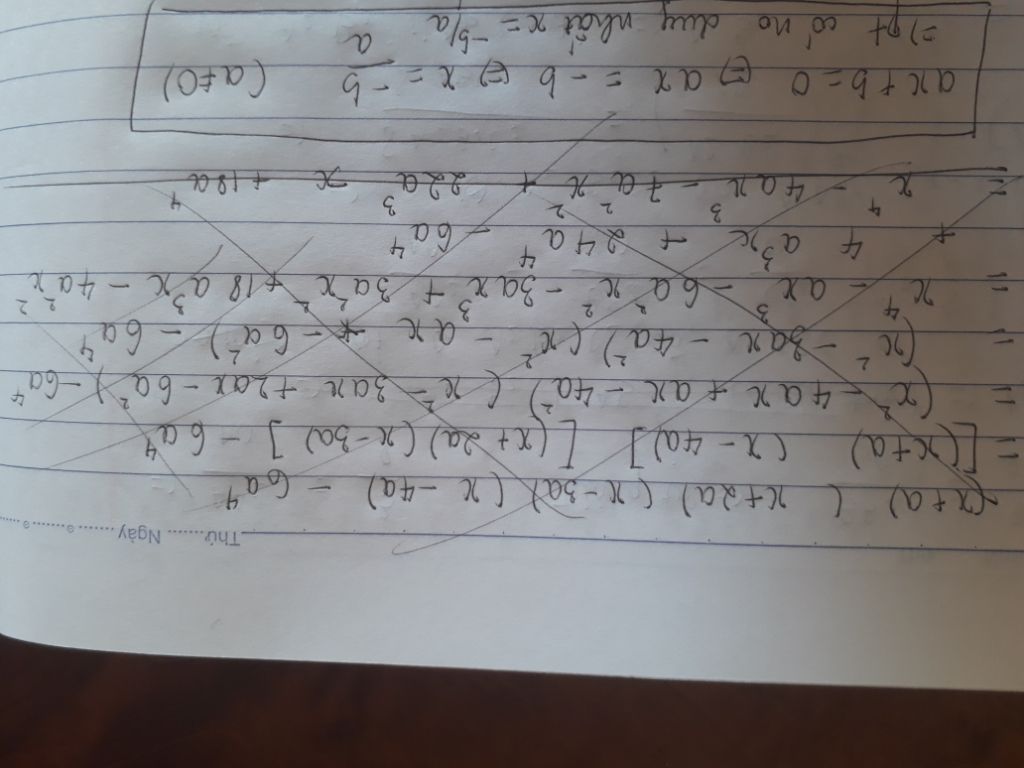 Thứ ......... Ngày ..........
(x+a) (x+2a) (x-3a) (x-4a) - 6a⁴
= [(x+a) (x-4a)] [(x+2a)(x-3a)] - 6a⁴
= (x² - 4ax + ax - 4a²) (x² - 3ax + 2ax - 6a²) - 6a⁴
= (x² - 3ax - 4a²) (x² - ax - 6a²) - 6a⁴
= x⁴ - ax³ - 6a²x² - 3ax³ + 3a²x² + 18a³x - 4a²x²
+ 4a³x + 24a⁴ - 6a⁴
= x⁴ - 4ax³ - 7a²x² + 22a³x + 18a⁴
ax+b=0 ⇔ ax = -b ⇔ x = -b/a (a≠0)
=) pt có no duy nhất x = -b/a